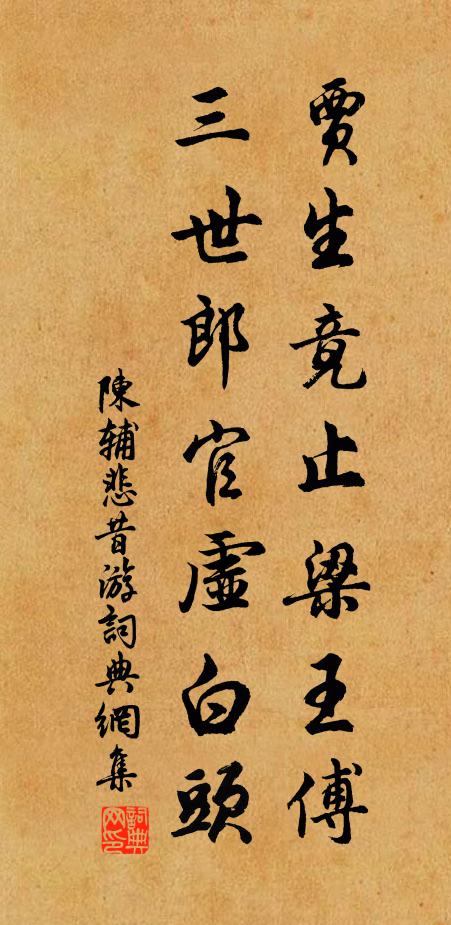 賈生竟止梁王傅
三世郎官虛白頭
陳輔悲昔游詞典網集
詞典網印